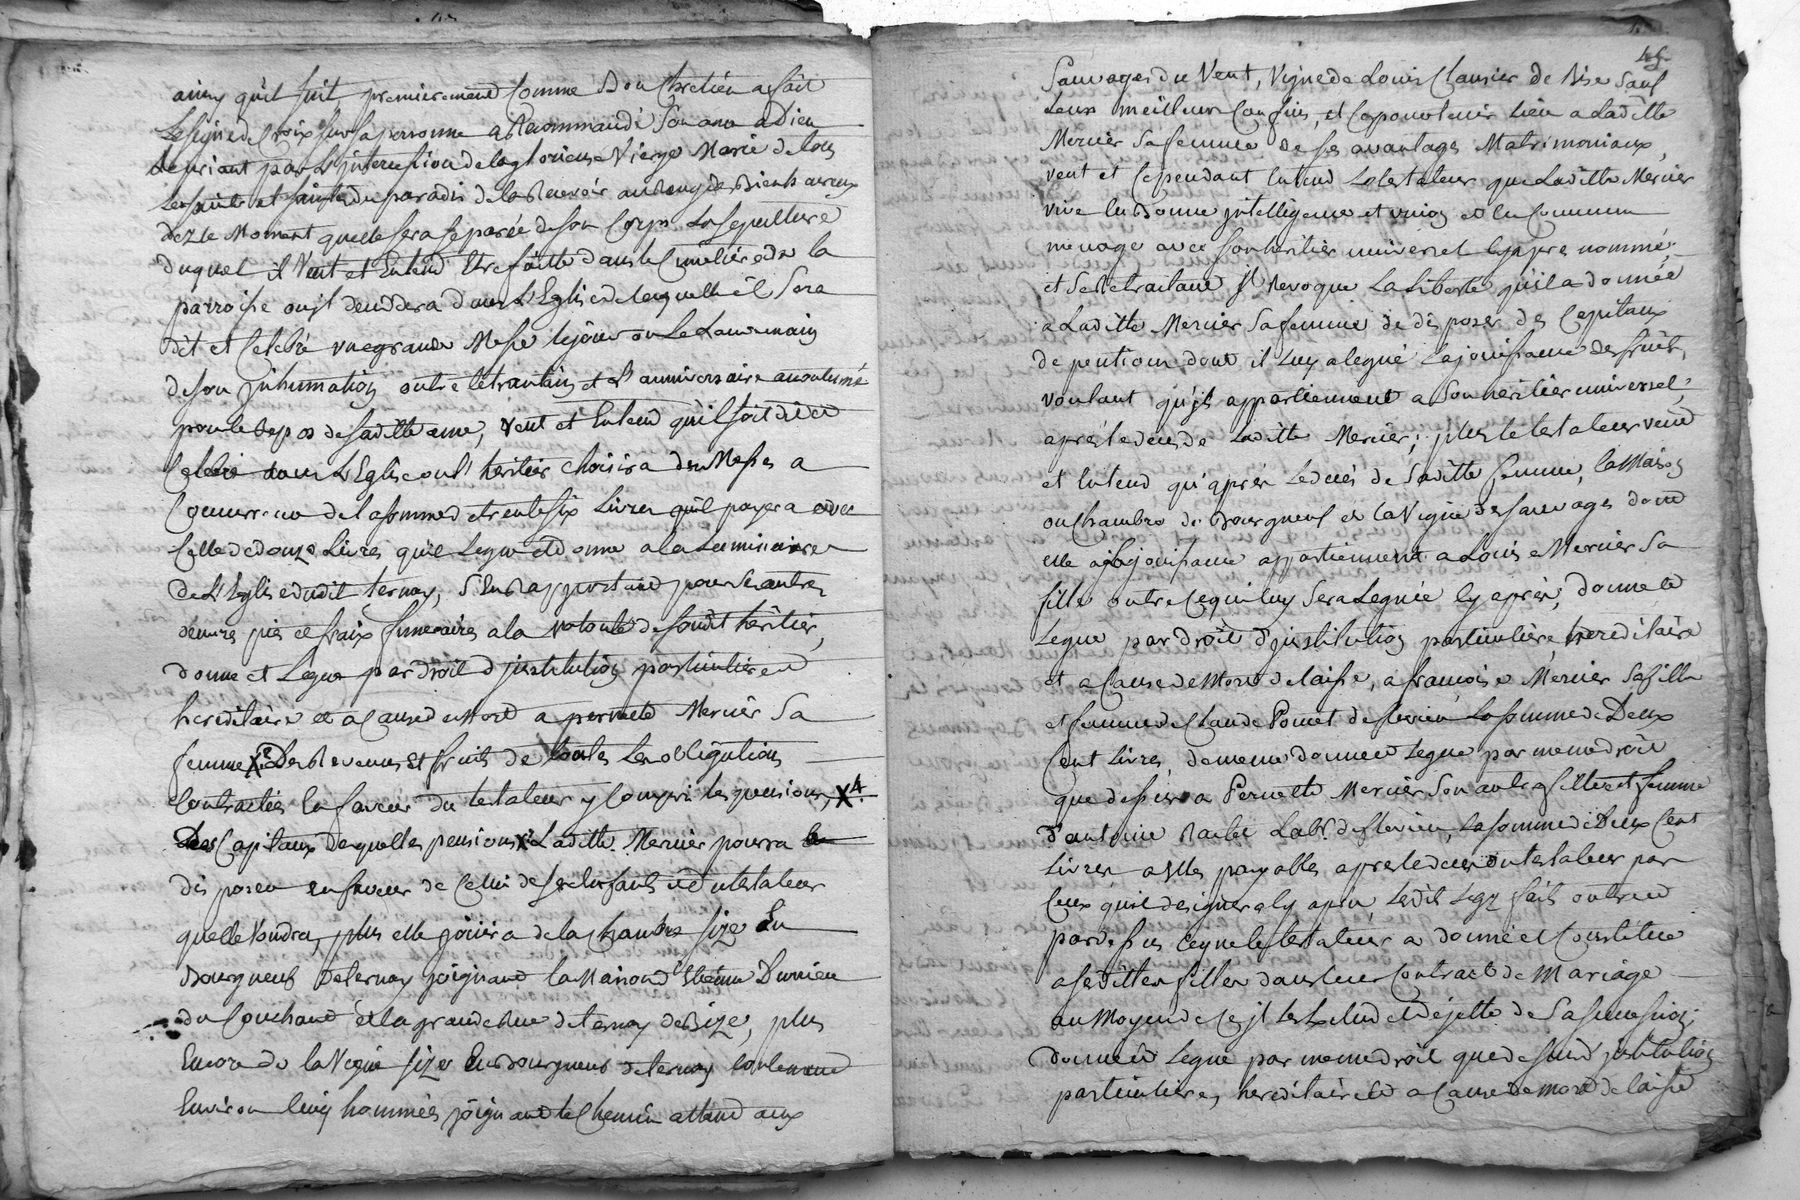 ainsy qu'il suit premierement Comme Bon Chretien a fait
Le signe de Croix sur sa personne a Recommandé Son ame a Dieu
Le priant par L'jntercession de la glorieuse Vierge Marie de tous
Les saints et saintes du paradis de la Recevoir au Rang des Bienheureux
dez le Moment quelle sera separée de son Corps La sepulture
duquel il Veut et Entend Etre faitte dans le Cimetiere de la
parroisse ou jl deceddera dans L'Eglise de laquelle il Sera
dit et Celebré une grande Messe le jour ou Le Landemain
de son jnhumation outre le trantain et L'anniversaire accoutumé
pour le Repos de sa ditte ame, veut et Entend qu'il soit dit et
Celebré dans L'Eglise ou l'heritier choisira des Messes a
Concurrence de la somme de trente six Livres qu'il payera avec
Celle de douze Livres qu'il Legue et donne a la Luminaire
de L'Eglise dudit ternay, S'En Rapportant pour Ses autres
œuvres pies et fraix funeraires a la Volonté de son dit heritier,
donne et Legue par droit d'jnstitution particuliere et
hereditaire et a Cause de Mort a pernette Mercier Sa
femme X Les Revenus et fruits de toutes Les obligations
Contractées En faveur du testateur y Compris les pensions, X 4
Des Capitaux desquelles pensions X Laditte Mercier pourra
disposer en faveur de Celui de ses Enfants et du testateur
quelle Voudra, plus elle jouira de la Chambre size En
Bourgneuf de ternay joignant la Maison d'Etienne Dumien
du Couchant et la grande Rue de ternay de Bize, plus
Encore de la Vigne size En Bourgneuf de ternay Contenant
Environ Cinq hommées joignant le Chemin attend aux
45
Sauvages du Vent, Vigne de Louis Clavier de Bise Sauf
Leurs meilleurs Confins, et Ce pour tenir Lieu a Laditte
Mercier Sa femme de ses avantages Matrimoniaux,
veut et Cependant Entend Le testateur que Laditte Mercier
vive En Bonne jntelligence et union et En Commun
menage avec son heritier universel cy apres nommé,
et Se Retractant jl Revoque La Liberté qu'il a donnée
a Laditte Mercier Sa femme de disposer des Capitaux
de pentions dont il Luy a legué la jouissance des fruits,
voulant qu'ils appartiennent a Son heritier universel,
apres le deces de Laditte Mercier; plus le testateur veut
et Entend qu'apres Le deces de Saditte femme, la Maison
ou Chambre de Bourgneuf et la Vigne des sauvages dont
elle a la jouissance appartiennent a Louise Mercier Sa
fille outre Ce qui luy Sera Legué Cy apres; donne et
Legue par droit d'jnstitution particuliere, hereditaire
et a Cause de Mort delaisse, a françoise Mercier Sa fille
et femme de Claude Pomet de La somme de Deux
Cent Livres de meme donne et Legue par meme droit
que dessus a Pernette Mercier Son autre fille et femme
d'antoine Barbe Labr. de La somme de Deux Cent
Livres a Elles payables apres le deces du testateur par
Celui qu'il designera Cy apres, Lesdits Legs fait outre et
par dessus Ce que le testateur a donné et Constitué
a sesdittes filles dans leur Contract de Mariage
au Moyen de Ce jl Les Exclud et dejette de Sa succession;
donne et Legue par meme droit que dessus d'jnstitution
particuliere, hereditaire et a Cause de Mort delaisse